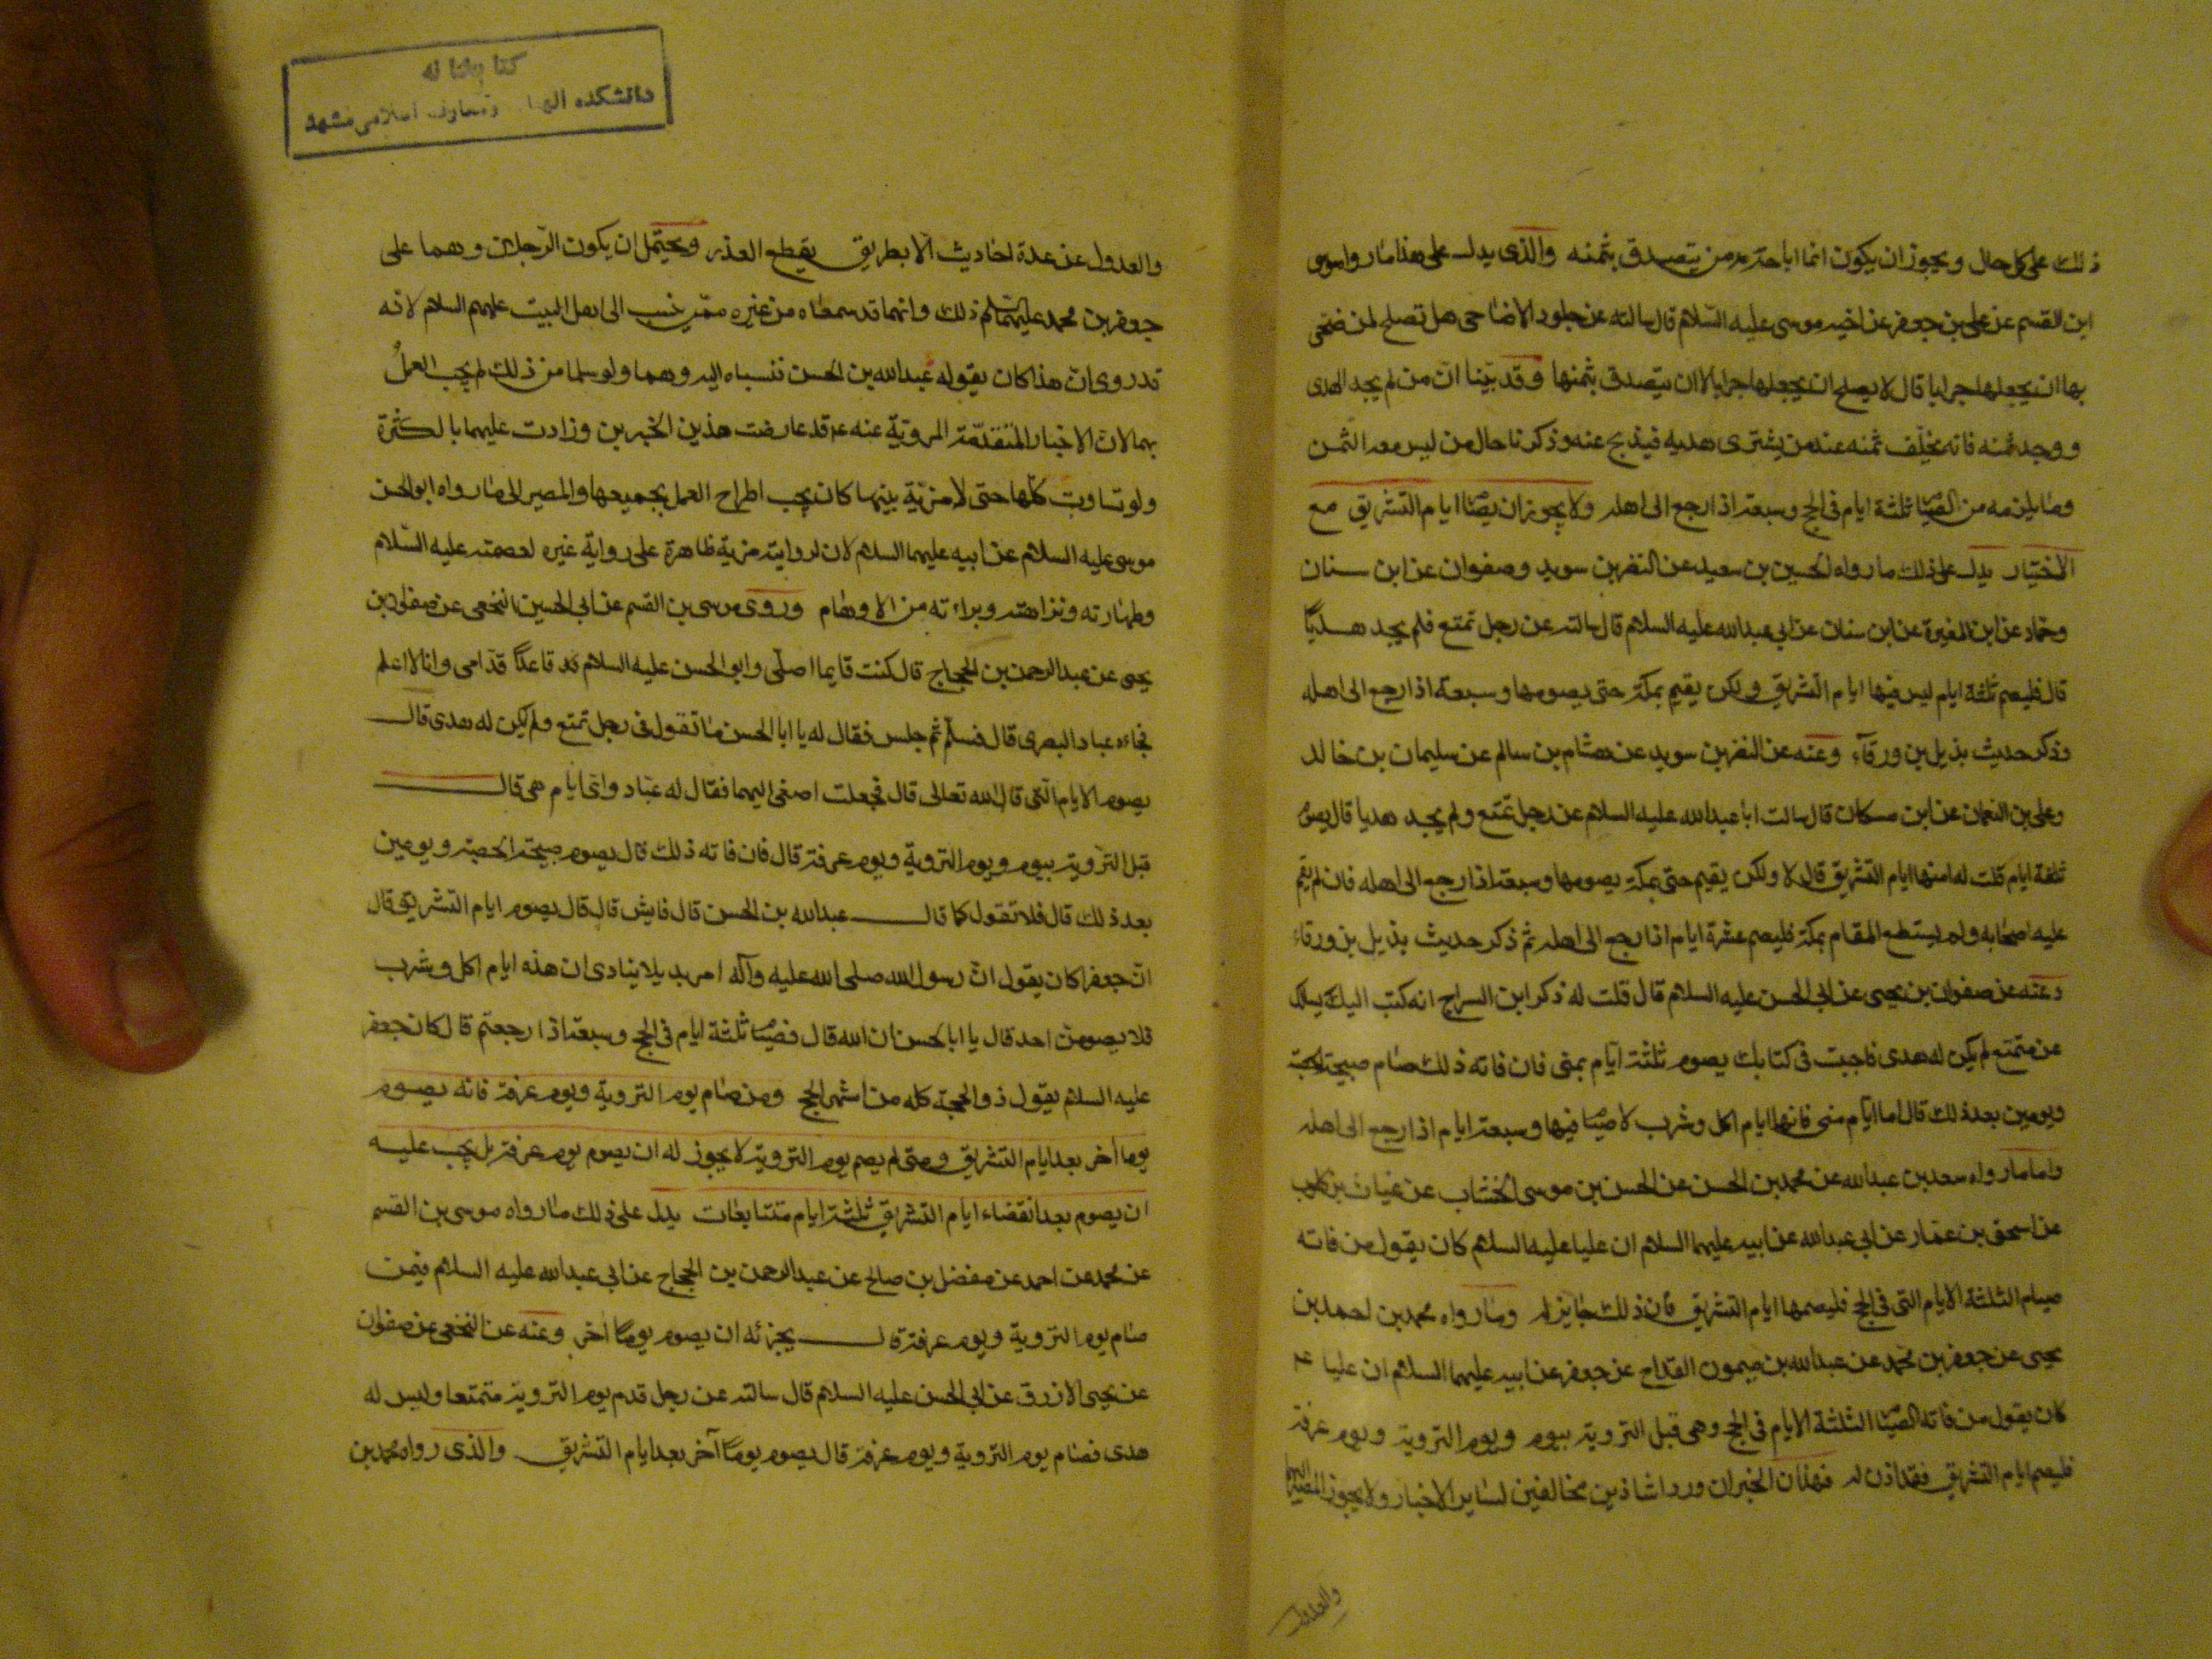 ذلك على كل حال ويجوز ان يكون انما اباحته من يتصدق بثمنه والذى يدل على هذا مارواه موسى
ابن القسم عن على بن جعفر عن اخيه موسى عليه السلام قال سالته عن جلود الاضاحى هل تصلح لمن ضحى
بها ان يجعلها جرابا قال لا يصلح ان يجعلها جرابا الا ان يتصدق بثمنها وقد بينا ان من لم يجد الهدى
ووجد ثمنه فانه يخلف ثمنه عند من يشترى هديه فيذبح عنه وذكرنا حال من ليس معه الثمن
وما يلزمه من الصيا ثلثة ايام فى الحج وسبعة اذا رجع الى اهله ولا يجوز ان يصا ايام التشريق مع
الاختيار يدل على ذلك ما رواه الحسين بن سعيد عن النضر بن سويد وصفوان عن ابن سنان
وحماد عن ابن المغيرة عن ابن سنان عن ابى عبدالله عليه السلام قال سالته عن رجل تمتع فلم يجد هديا
قال فليصم ثلثة ايام ليس فيها ايام التشريق ولكن يقيم بمكة حتى يصومها وسبعة اذا رجع الى اهله
وذكر حديث بذيل بن ورقاء وعنه عن النضر بن سويد عن هشام بن سالم عن سليمان بن خالد
وعلى بن النعمان عن ابن مسكان قال سالت ابا عبدالله عليه السلام عن رجل تمتع ولم يجد هديا قال يصو
ثلثة ايام قلت له امنها ايام التشريق قال لا ولكن يقيم حتى بمكة يصومها وسبعة اذا رجع الى اهله فان لم يقم
عليه اصحابه ولم يستطع المقام بمكة فليصم عشرة ايام اذا رجع الى اهله ثم ذكر حديث بذيل بن ورقاء
وعنه عن صفوان بن يحيى عن ابى الحسن عليه السلام قال قلت له ذكر ابن السراج انه كتب اليك يسالك
عن متمتع لم يكن له هدى فاجبت فى كتابك يصوم ثلثة ايام بمنى فان فاته ذلك صام صبيحة الحصبة
ويومين بعد ذلك قال اما ايام منى فانها ايام اكل وشرب لا صيا فيها وسبعة ايام اذا رجع الى اهله
واما ما رواه سعد بن عبدالله عن محمد بن الحسن عن الحسن بن موسى الخشاب عن غياث بن كلوب
عن اسحق بن عمار عن ابى عبدالله عن ابيه عليهما السلام ان عليا عليه السلام كان يقول من فاته
صيام الثلثة الايام التى فى الحج فليصمها ايام التشريق فان ذلك جايز له وما رواه محمد بن احمد بن
يحيى عن جعفر بن محمد عن عبدالله بن ميمون القداح عن جعفر عن ابيه عليهما السلام ان عليا ع
كان يقول من فاته الصيا الثلثة الايام فى الحج وهى قبل التروية بيوم ويوم التروية ويوم عرفة
فليصم ايام التشريق فقد اذن له فهذان الخبران وردا شاذين مخالفين لساير الاخبار ولا يجوز المصير اليهما
والعدول
كتابخانه
دانشكده الهيات ومعارف اسلامى مشهد
والعدول عن عدة احاديث الا بطريق يقطع العذر ويحتمل ان يكون الرجلين وهما على
جعفر بن محمد عليهما السلام ذلك وانهما قد سمعاه من غيره ممن ينسب الى اهل البيت عليهم السلام لانه
قد روى ان هذا كان يقوله عبدالله بن الحسن فنسباه اليه وهما ولو سلما من ذلك لم يجب العمل
بهما لان الاخبار المتقدمة المروية عنه ع قد عارضت هذين الخبرين وزادت عليهما بالكثرة
ولو تساوت كلها حتى لا مزية بينهما كان يجب اطراح العمل بجميعها والمصير الى ما رواه ابو الحسن
موسى عليه السلام عن ابيه عليهما السلام لان لروايته مزية ظاهرة على رواية غيره لعصمته عليه السلام
وطهارته ونزاهته وبراءته من الاوهام وروى موسى بن القسم عن ابى الحسين النخعى عن صفوان بن
يحيى عن عبدالرحمن بن الحجاج قال كنت قايما اصلى وابو الحسن عليه السلام قاعدا قدامى وانا لا اعلم
فجاءه عباد البصرى قال فسلم ثم جلس فقال له يا ابا الحسن ما تقول فى رجل تمتع ولم يكن له هدى قال
يصوم الايام التى قال الله تعالى قال فجعلت اصغى اليهما فقال له عباد واى ايام هى قال
قبل التروية بيوم ويوم التروية ويوم عرفة قال فان فاته ذلك قال يصوم صبيحة الحصبة ويومين
بعد ذلك قال فلا تقول كما قال عبدالله بن الحسن قال فايش قال قال يصوم ايام التشريق قال
ان جعفرا كان يقول ان رسول الله صلى الله عليه وآله امر بديلا ينادى ان هذه ايام اكل وشرب
فلا يصومن احد قال يا ابا الحسن ان الله قال فصيا ثلثة ايام فى الحج وسبعة اذا رجعتم قال كان جعفر
عليه السلام يقول ذو الحجة كله من اشهر الحج ومن صام يوم التروية ويوم عرفة فانه يصوم
يوما آخر بعد ايام التشريق ومتى لم يصم يوم التروية لا يجوز له ان يصوم يوم عرفة بل يجب عليه
ان يصوم بعد انقضاء ايام التشريق ثلثة ايام متتابعات يدل على ذلك ما رواه موسى بن القسم
عن محمد عن احمد عن مفضل بن صالح عن عبدالرحمن بن الحجاج عن ابى عبدالله عليه السلام فيمن
صام يوم التروية ويوم عرفة قال يجزئه ان يصوم يوما آخر وعنه عن النخعى عن صفوان
عن يحيى الازرق عن ابى الحسن عليه السلام قال سالته عن رجل قدم يوم التروية متمتعا وليس له
هدى فصام يوم التروية ويوم عرفة قال يصوم يوما آخر بعد ايام التشريق والذى رواه محمد بن